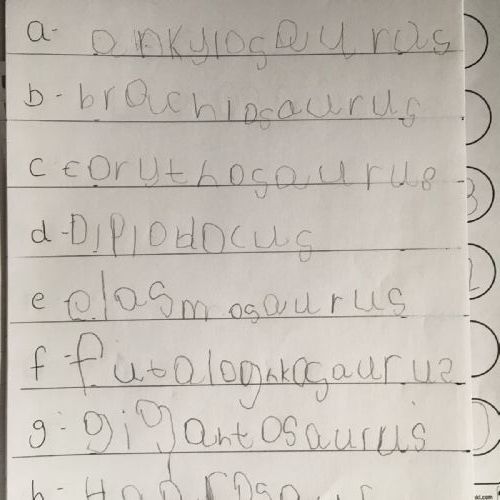 a- ankylosaurus
b- brachiosaurus
c corythosaurus
d- Diplodocus
e elasmosaurus
f futalognkosaurus
g- gigantosaurus